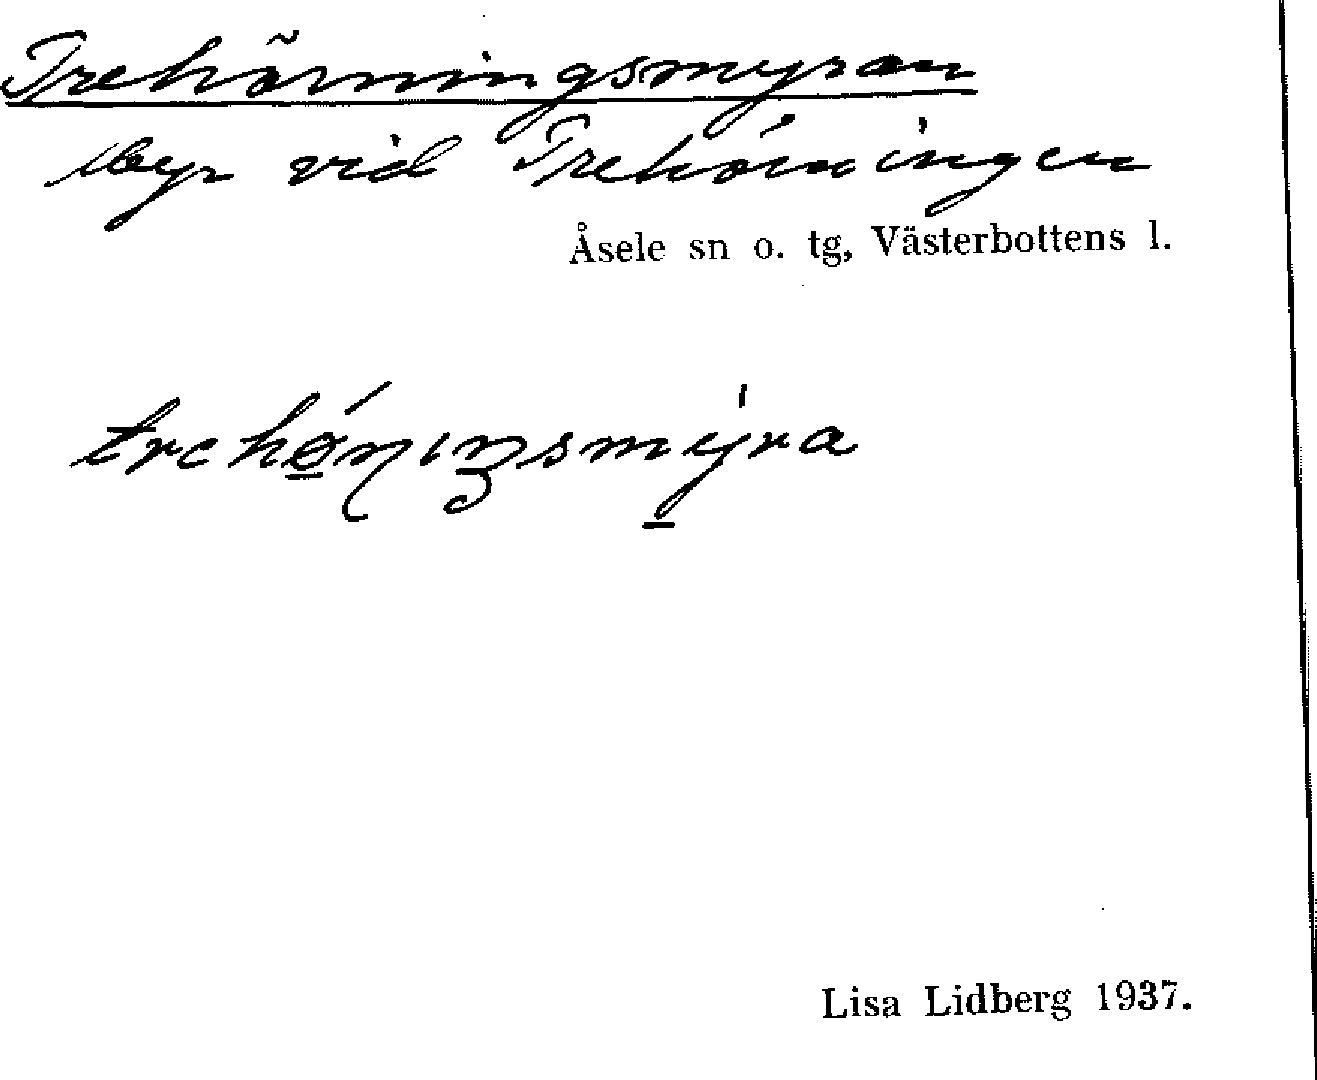 Trehörningsmyran
Myr vid Trehörningen
Åsele sn o. tg, Västerbottens l.
trehǿ̲ɳıŋsmy̲̍ra
Lisa Lidberg 1937.